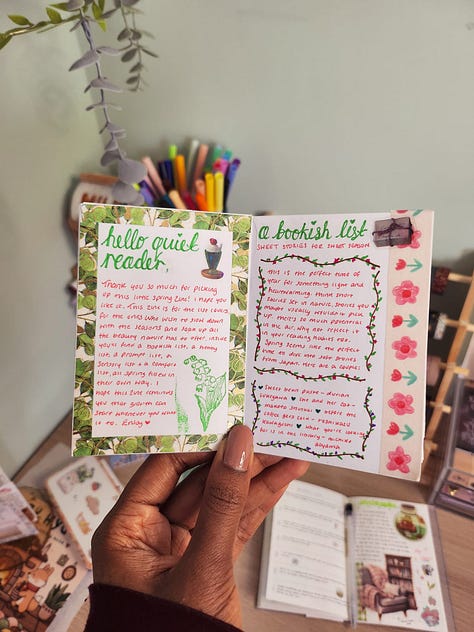 hello quiet
reader,
Thank you so much for picking
up this little spring zine! I hope you
like it. This zine is for the list lovers
for the ones who wish to slow down
with the seasons and soak up all
the beauty nature has to offer. Inside
you'll find a bookish list, a
list, a prompt list, a
sensory list & a comfort
list, all spring filled in
their own way. I
hope this zine reminds
you that charm can
start wherever you want
it to. Enjoy ♥
a bookish list
SWEET STORIES FOR SWEET SEASON
This is the perfect time of
year for something light and
heartwarming. Think short
stories set in nature, stories you
maybe usually wouldn't pick
up. There's so much potential
in the air, why not reflect it
in your reading habits too.
Spring seems like the perfect
time to dive into short stories
from Japan. Here are a couple:
♥ Sweet bean paste - Durian
Sukegawa ♥ She and her cat -
Makoto Shinkai ♥ Before the
coffee gets cold - Toshikazu
Kawaguchi ♥ What you're looking
for is in the library - Michiko
Aoyama